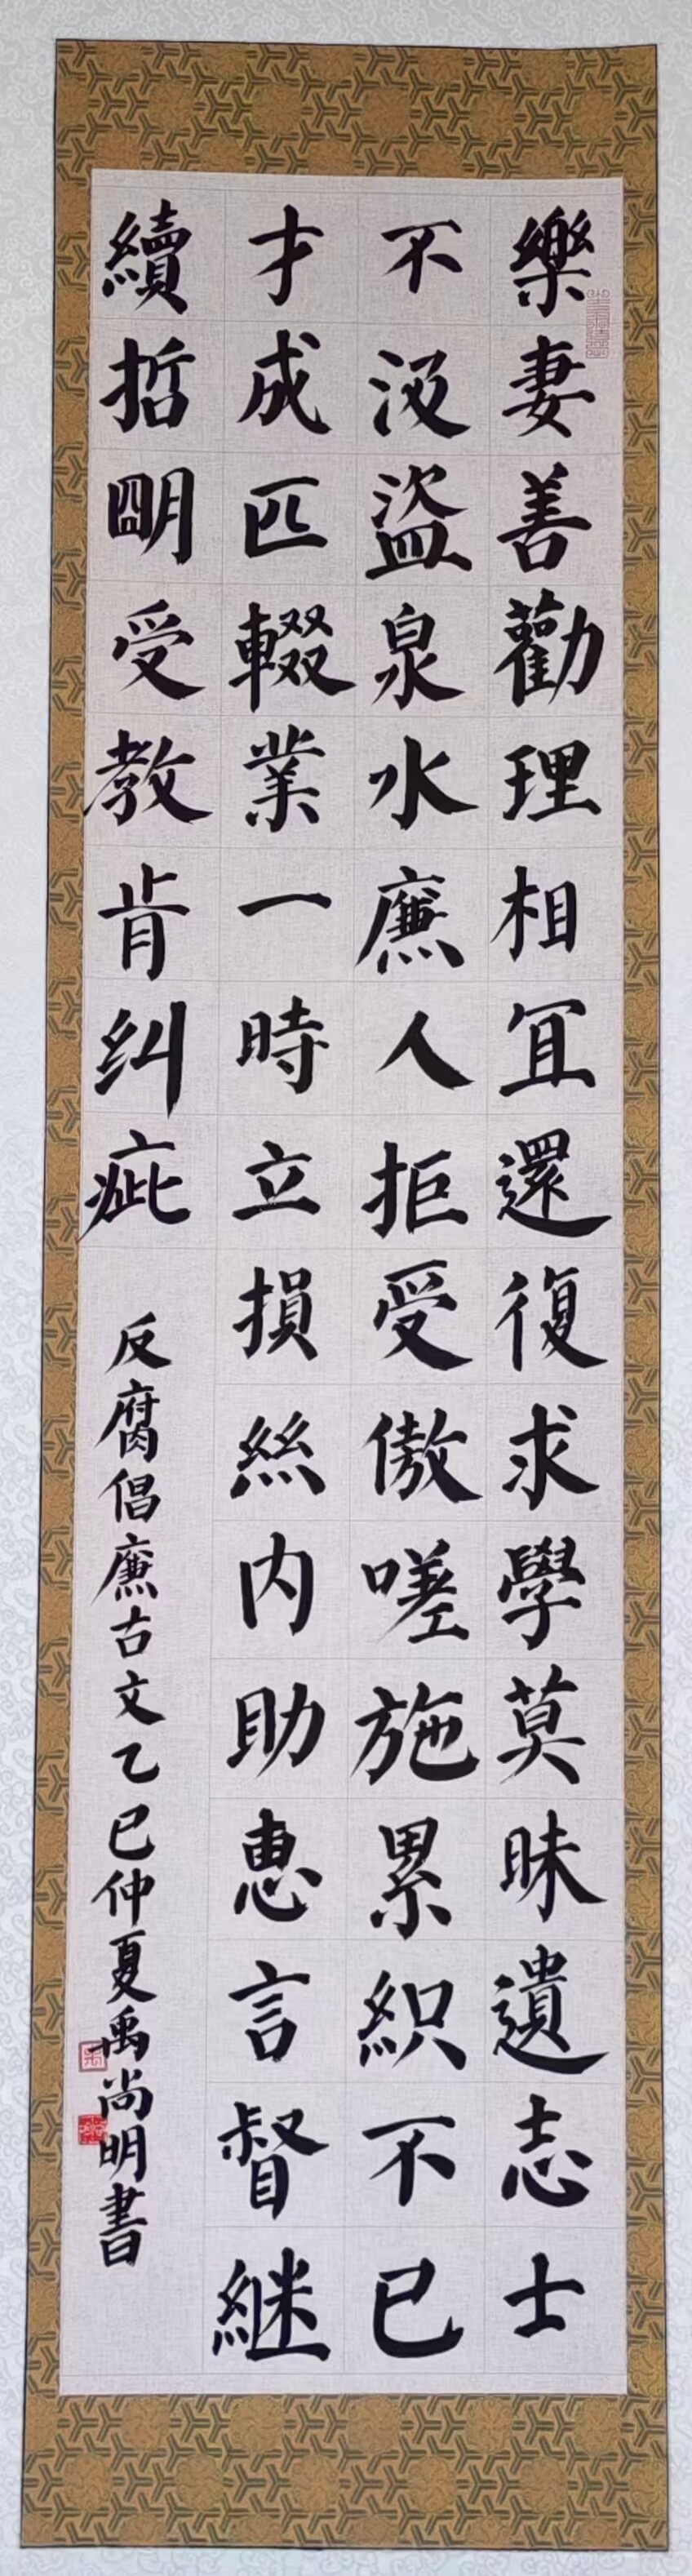 樂妻善勸理相宜還復求學莫昧遺志士
不汲盜泉水廉人拒受傲嗟施累織不已
才成匹輟業一時立損絲内助惠言督継
續哲明受教肯纠疵
反腐倡廉古文乙巳仲夏禹尚明書